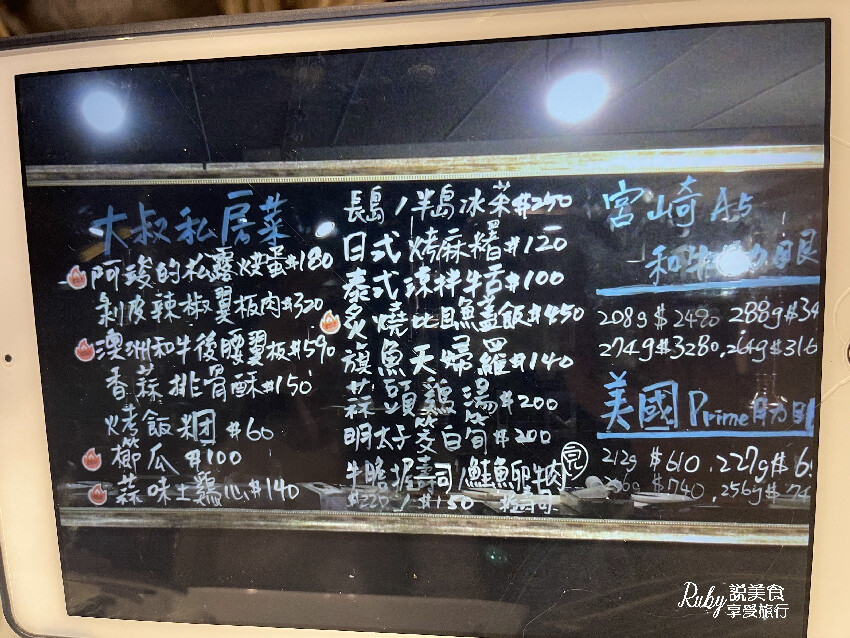 大叔私房菜
阿錂的松露烘蛋$180
剝皮辣椒翼板肉$320
澳洲和牛後腰翼板$590
香蒜排骨酥$150
烤飯糰$60
櫛瓜$100
蒜味土雞心$140
長島/半島冰茶$250
日式烤麻糬$120
泰式涼拌牛舌$100
炙燒比目魚蓋飯$450
旗魚天婦羅$140
蒜頭雞湯$200
明太子筊白筍$200
牛膽握壽司/鮭魚卵牛肉
$220/$150 握壽司
完
宮崎A5
和牛 眼
208g $2490 288g$34
274g$3280,264g$316
美國Prime
212g $610,227g$6
$740,256g$74
Ruby說美食
享受旅行